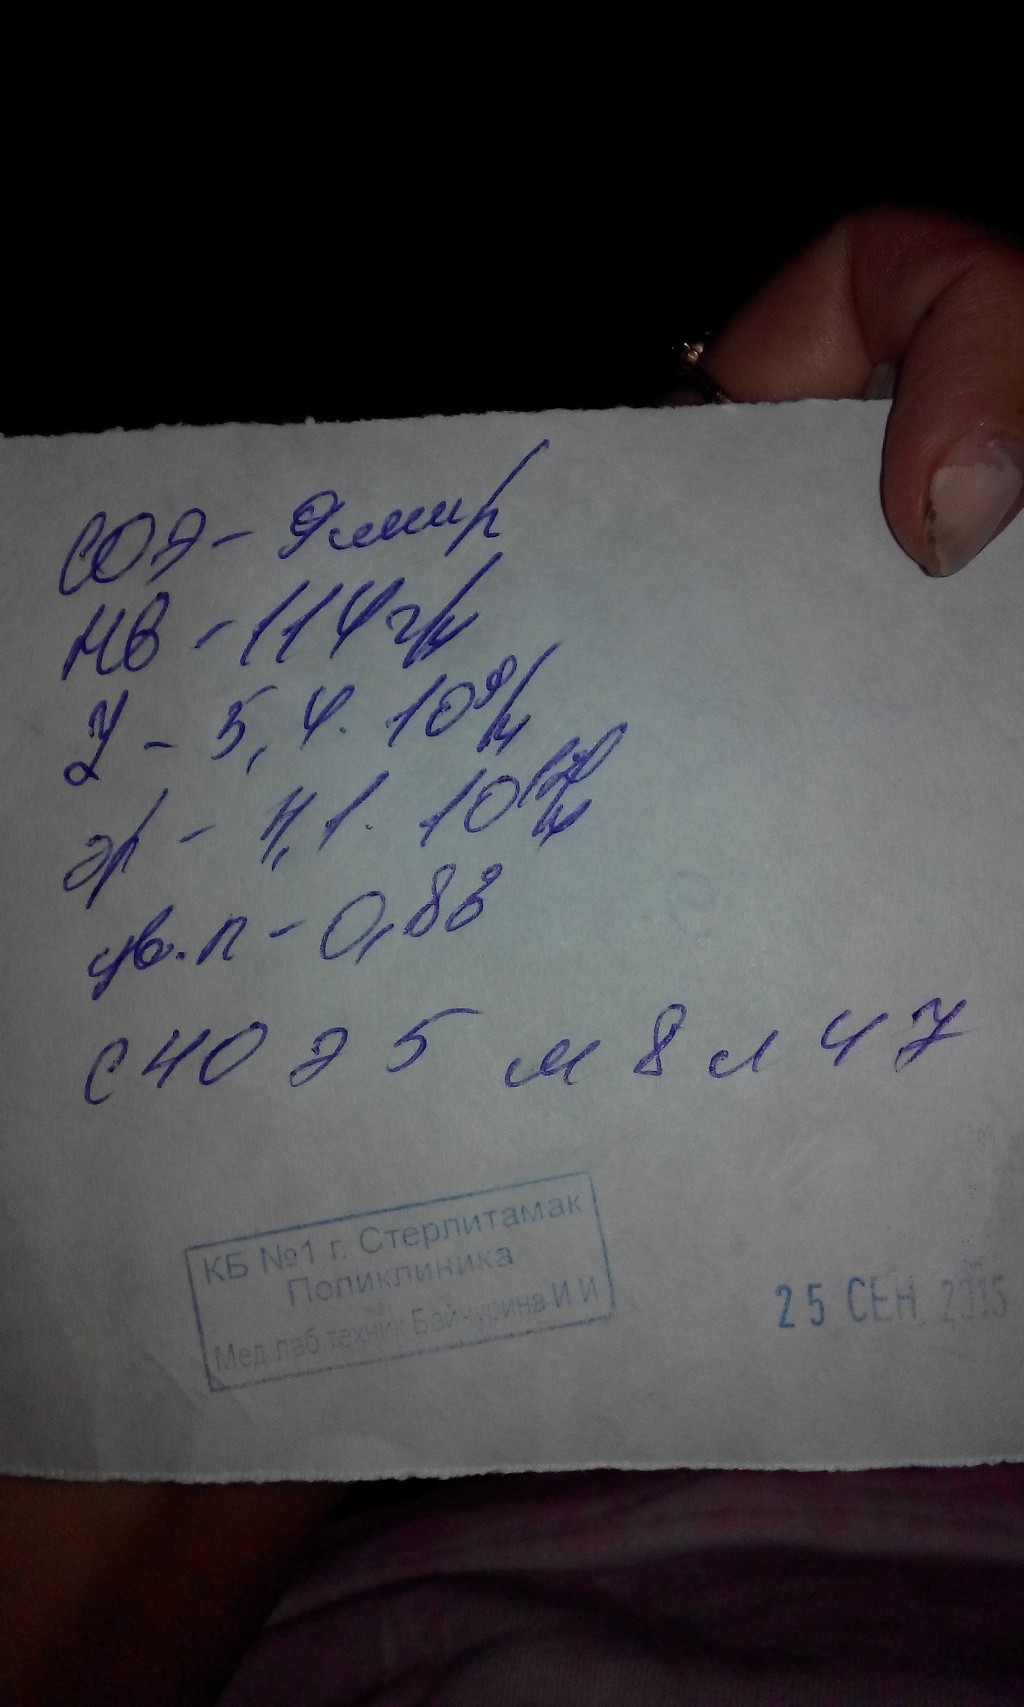 СОЭ - 9 мм/г
Нв - 114 г/л
L - 5,4 · 10⁹/л
эр - 4,1 · 10¹²/л
цв.п - 0,83
с 40 э 5 м 8 л 47
КБ №1 г. Стерлитамак
Поликлиника
Мед лаб техник Байчурина И.И
25 СЕН 2015